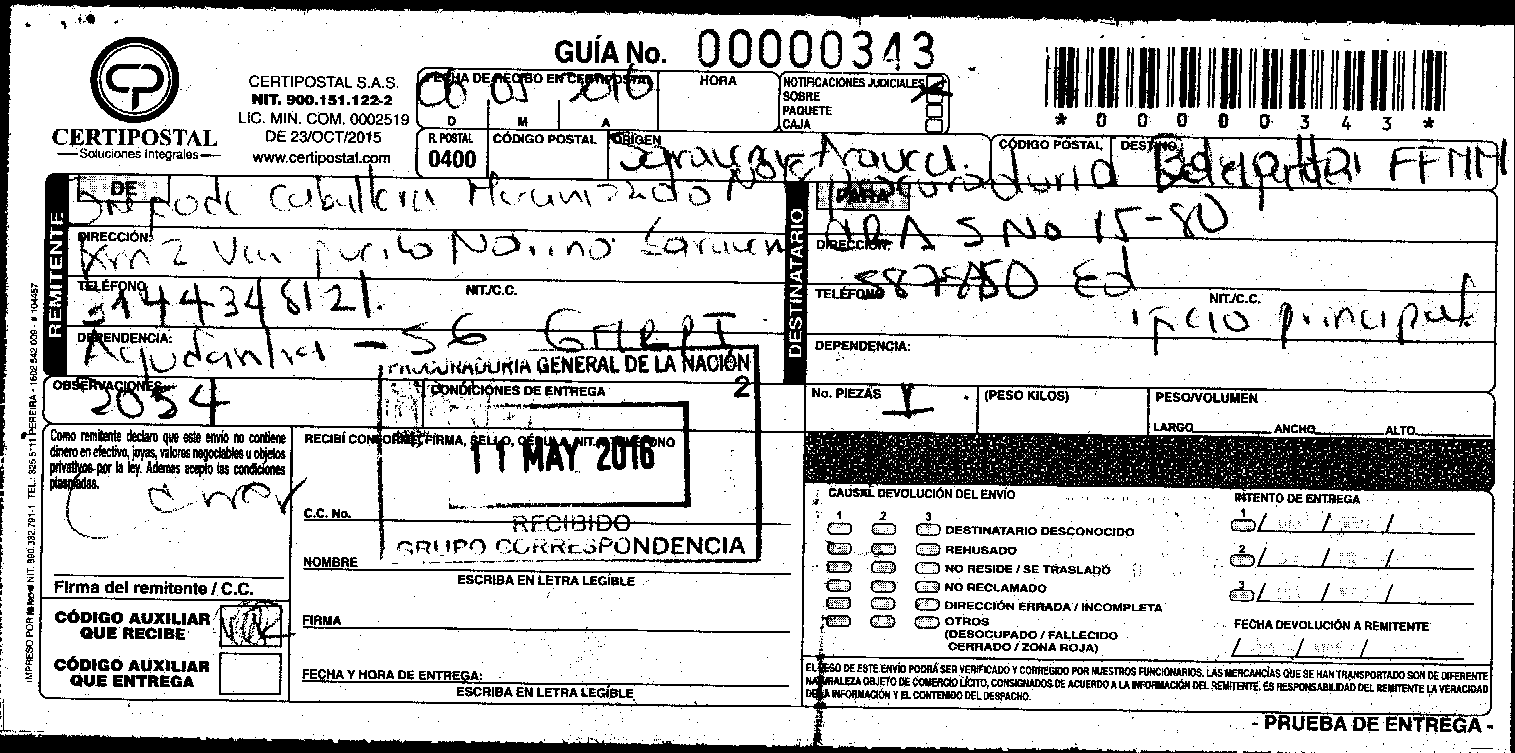 GUÍA No. 00000343
CERTIPOSTAL
Soluciones Integrales
CERTIPOSTAL S.A.S.
NIT. 900.151.122-2
LIC. MIN. COM. 0002519
DE 23/OCT/2015
www.certipostal.com
FECHA DE RECIBO EN CERTIPOSTAL
HORA
06 05 2016
D M A
NOTIFICACIONES JUDICIALES
SOBRE
PAQUETE
CAJA
* 0 0 0 0 0 3 4 3 *
R. POSTAL
0400
CÓDIGO POSTAL
ORIGEN
Arauca.
CÓDIGO POSTAL
DESTINO
FFMM
REMITENTE
DE
Caballeria Mecanizado
DIRECCIÓN:
Km 2 Via
TELÉFONO
3144348121.
NIT./C.C.
DEPENDENCIA:
Ayudantia - S6
DESTINATARIO
PARA
Procuraduria Delegada
DIRECCIÓN:
KRA 5 No 15-80
TELÉFONO
5878750 Ed
NIT./C.C.
principal
DEPENDENCIA:
OBSERVACIONES
2054
CONDICIONES DE ENTREGA
No. PIEZAS 1
(PESO KILOS)
PESO/VOLUMEN
LARGO ANCHO ALTO
Como remitente declaro que este envío no contiene
dinero en efectivo, joyas, valores negociables u objetos
privativos por la ley. Ademas acepto las condiciones
plaspadas.
Firma del remitente / C.C.
CÓDIGO AUXILIAR
QUE RECIBE
CÓDIGO AUXILIAR
QUE ENTREGA
RECIBÍ CONFORME, FIRMA, SELLO, CÉDULA, NIT. O TELÉFONO
C.C. No.
NOMBRE
ESCRIBA EN LETRA LEGIBLE
FIRMA
FECHA Y HORA DE ENTREGA:
ESCRIBA EN LETRA LEGIBLE
PROCURADURIA GENERAL DE LA NACIÓN
2
11 MAY 2016
RECIBIDO
GRUPO CORRESPONDENCIA
CAUSAL DEVOLUCIÓN DEL ENVÍO
1 2 3
DESTINATARIO DESCONOCIDO
REHUSADO
NO RESIDE / SE TRASLADÓ
NO RECLAMADO
DIRECCIÓN ERRADA / INCOMPLETA
OTROS
(DESOCUPADO / FALLECIDO
CERRADO / ZONA ROJA)
INTENTO DE ENTREGA
1 / / /
2 / / /
3 / / /
FECHA DEVOLUCIÓN A REMITENTE
/ / /
EL PESO DE ESTE ENVÍO PODRÁ SER VERIFICADO Y CORREGIDO POR NUESTROS FUNCIONARIOS. LAS MERCANCÍAS QUE SE HAN TRANSPORTADO SON DE DIFERENTE
NATURALEZA OBJETO DE COMERCIO LÍCITO, CONSIGNADOS DE ACUERDO A LA INFORMACIÓN DEL REMITENTE. ES RESPONSABILIDAD DEL REMITENTE LA VERACIDAD
DE LA INFORMACIÓN Y EL CONTENIDO DEL DESPACHO.
- PRUEBA DE ENTREGA -